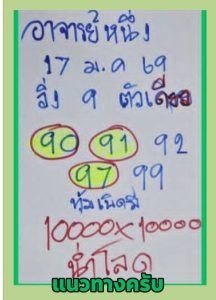 อาจารย์หนึ่ง
17 ม.ค 69
วิ่ง 9 ตัวเดียว
90 91 92
97 99
ทุ่มเนิดๆ
10000x10000
นำโลด
แนวทางครับ